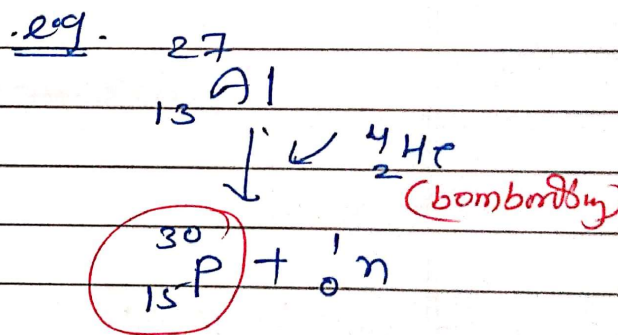 .eg.
²⁷₁₃Al
↓ ↙ ⁴₂He
(bombarding)
³⁰₁₅P + ¹₀n